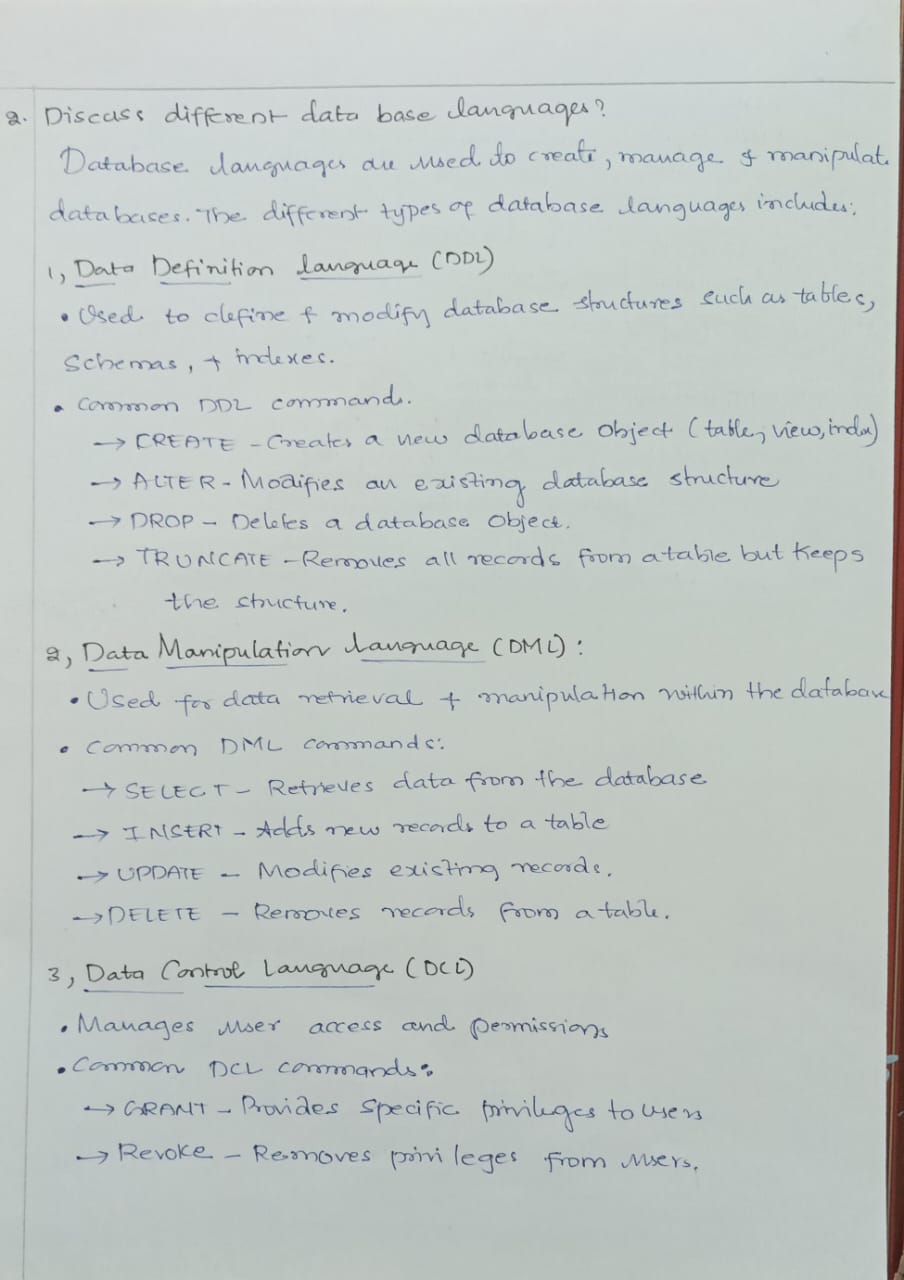 2. Discuss different data base languages?
Database languages are used to create, manage & manipulat
databases. The different types of database languages includes:
1, Data Definition language (DDL)
• Used to define & modify database structures such as tables,
Schemas, & indexes.
• Common DDL commands.
→ CREATE - Creates a new database object (table, view, index)
→ ALTER - Modifies an existing database structure
→ DROP - Deletes a database object.
→ TRUNCATE - Removes all records from a table but keeps
the structure.
2, Data Manipulation language (DML):
• Used for data retrieval & manipulation within the database
• Common DML commands:
→ SELECT - Retrieves data from the database
→ INSERT - Adds new records to a table
→ UPDATE - Modifies existing records.
→ DELETE - Removes records from a table.
3, Data Control Language (DCL)
• Manages user access and permissions
• Common DCL commands:
→ GRANT - Provides specific privileges to users
→ Revoke - Removes privileges from users.